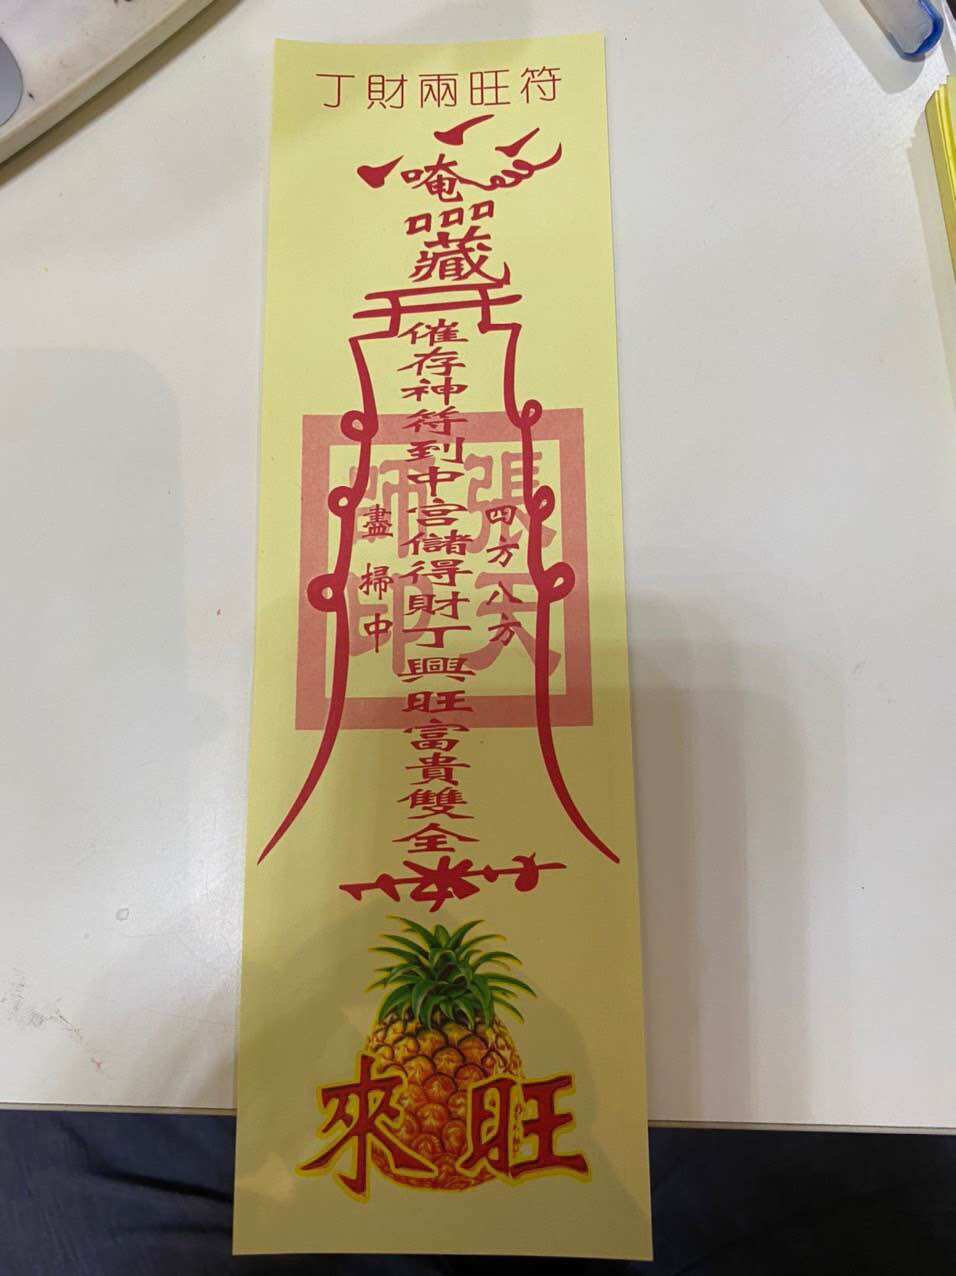 丁財兩旺符
唵
口口口
藏
催存神符到中宮儲得財丁興旺富貴雙全
四方八方
盡掃中
張天師印
旺來